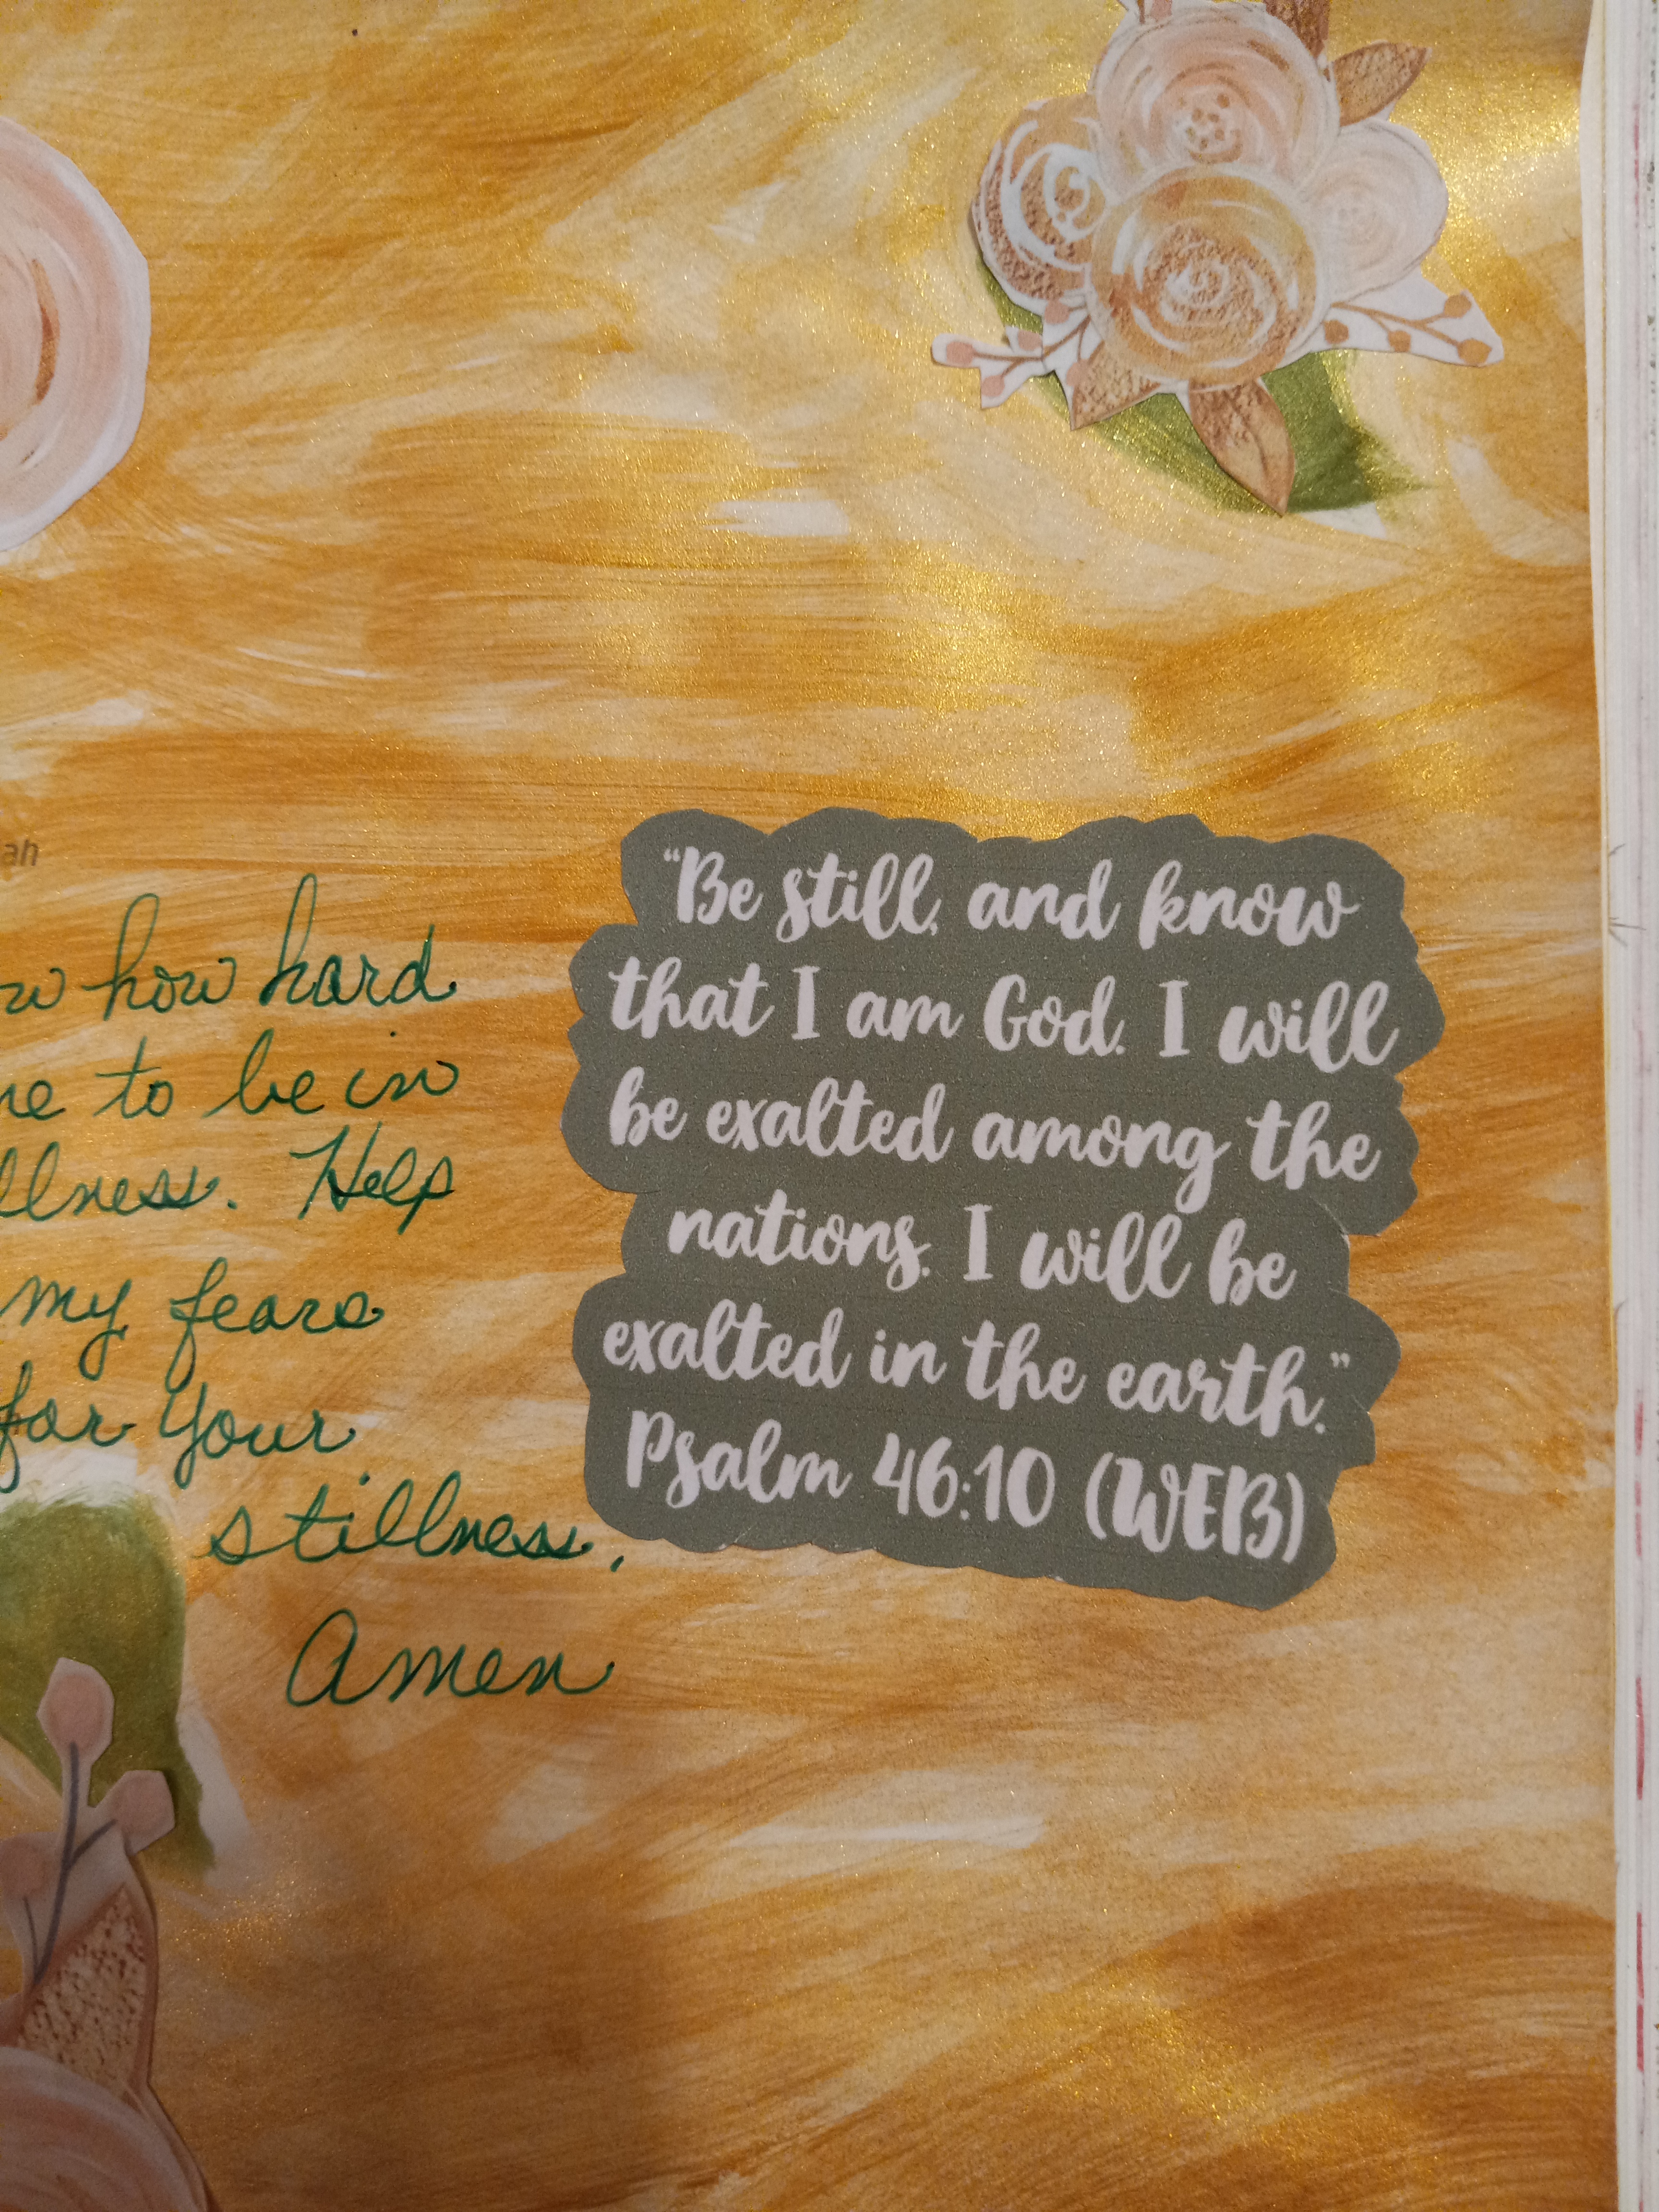 ah
w how hard
ne to be in
llness. Help
my fears
for your
stillness.
Amen
"Be still, and know
that I am God. I will
be exalted among the
nations. I will be
exalted in the earth."
Psalm 46:10 (WEB)